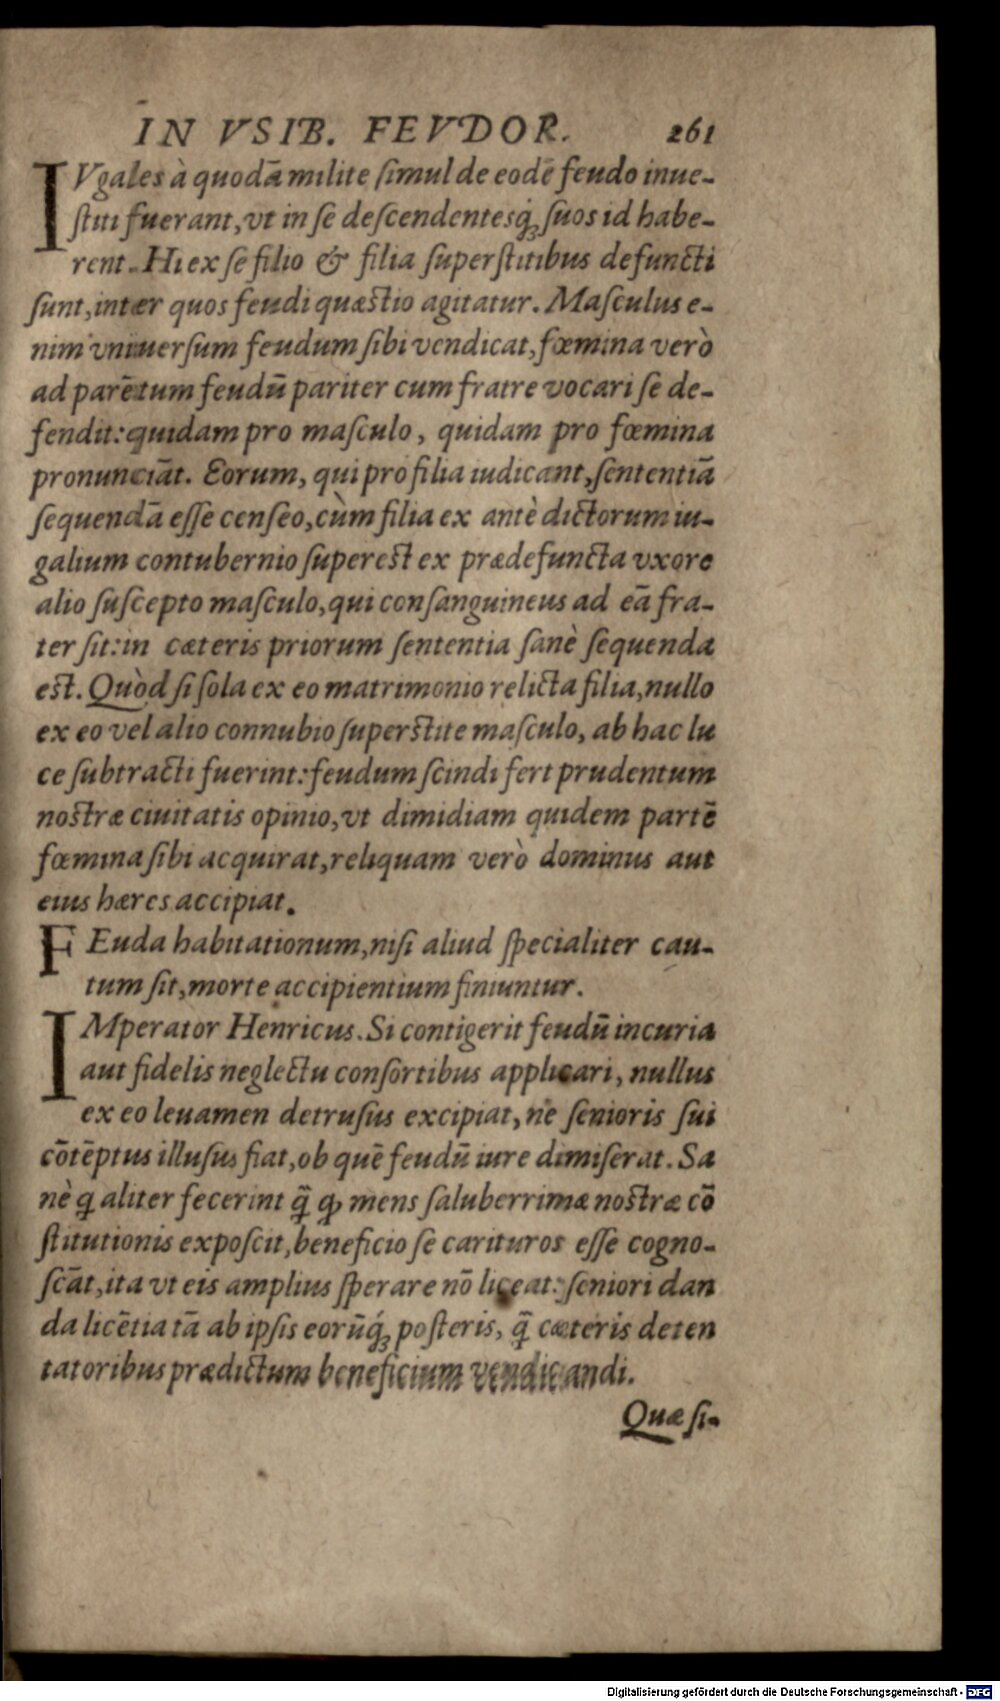 IN VSIB. FEVDOR. 261
IVgales à quodā milite ſimul de eodē feudo inue-
ſtiti fuerant, vt in ſe deſcendentesq́ꝫ ſuos id habe-
rent. Hi ex ſe filio & filia ſuperſtitibus defuncti
ſunt, inter quos feudi quæſtio agitatur. Maſculus e-
nim vniuerſum feudum ſibi vendicat, fœmina verò
ad parētum feudū pariter cum fratre vocari ſe de-
fendit: quidam pro maſculo, quidam pro fœmina
pronunciāt. Eorum, qui pro filia iudicant, ſententiā
ſequendā eſſe cenſeo, cùm filia ex antè dictorum iu-
galium contubernio ſupereſt ex prædefuncta vxore
alio ſuſcepto maſculo, qui conſanguineus ad eā fra-
ter ſit: in cæteris priorum ſententia ſanè ſequenda
eſt. Quòd ſi ſola ex eo matrimonio relicta filia, nullo
ex eo vel alio connubio ſuperſtite maſculo, ab hac lu
ce ſubtracti fuerint: feudum ſcindi fert prudentum
noſtræ ciuitatis opinio, vt dimidiam quidem partē
fœmina ſibi acquirat, reliquam verò dominus aut
eius hæres accipiat.
FEuda habitationum, niſi aliud ſpecialiter cau-
tum ſit, morte accipientium finiuntur.
IMperator Henricus. Si contigerit feudū incuria
aut fidelis neglectu conſortibus applicari, nullus
ex eo leuamen detruſus excipiat, ne ſenioris ſui
cōtēptus illuſus fiat, ob quē feudū iure dimiſerat. Sa
nè q̣ aliter fecerint q̃ ꝙ mens ſaluberrimæ noſtræ cō
ſtitutionis expoſcit, beneficio ſe carituros eſſe cogno-
ſcāt, ita vt eis amplius ſperare nō liceat: ſeniori dan
da licētia tā ab ipſis eorūq́ꝫ poſteris, q̃ cæteris deten
tatoribus prædictum beneficium vendicandi.
Quæ ſi-
Digitalisierung gefördert durch die Deutsche Forschungsgemeinschaft - DFG